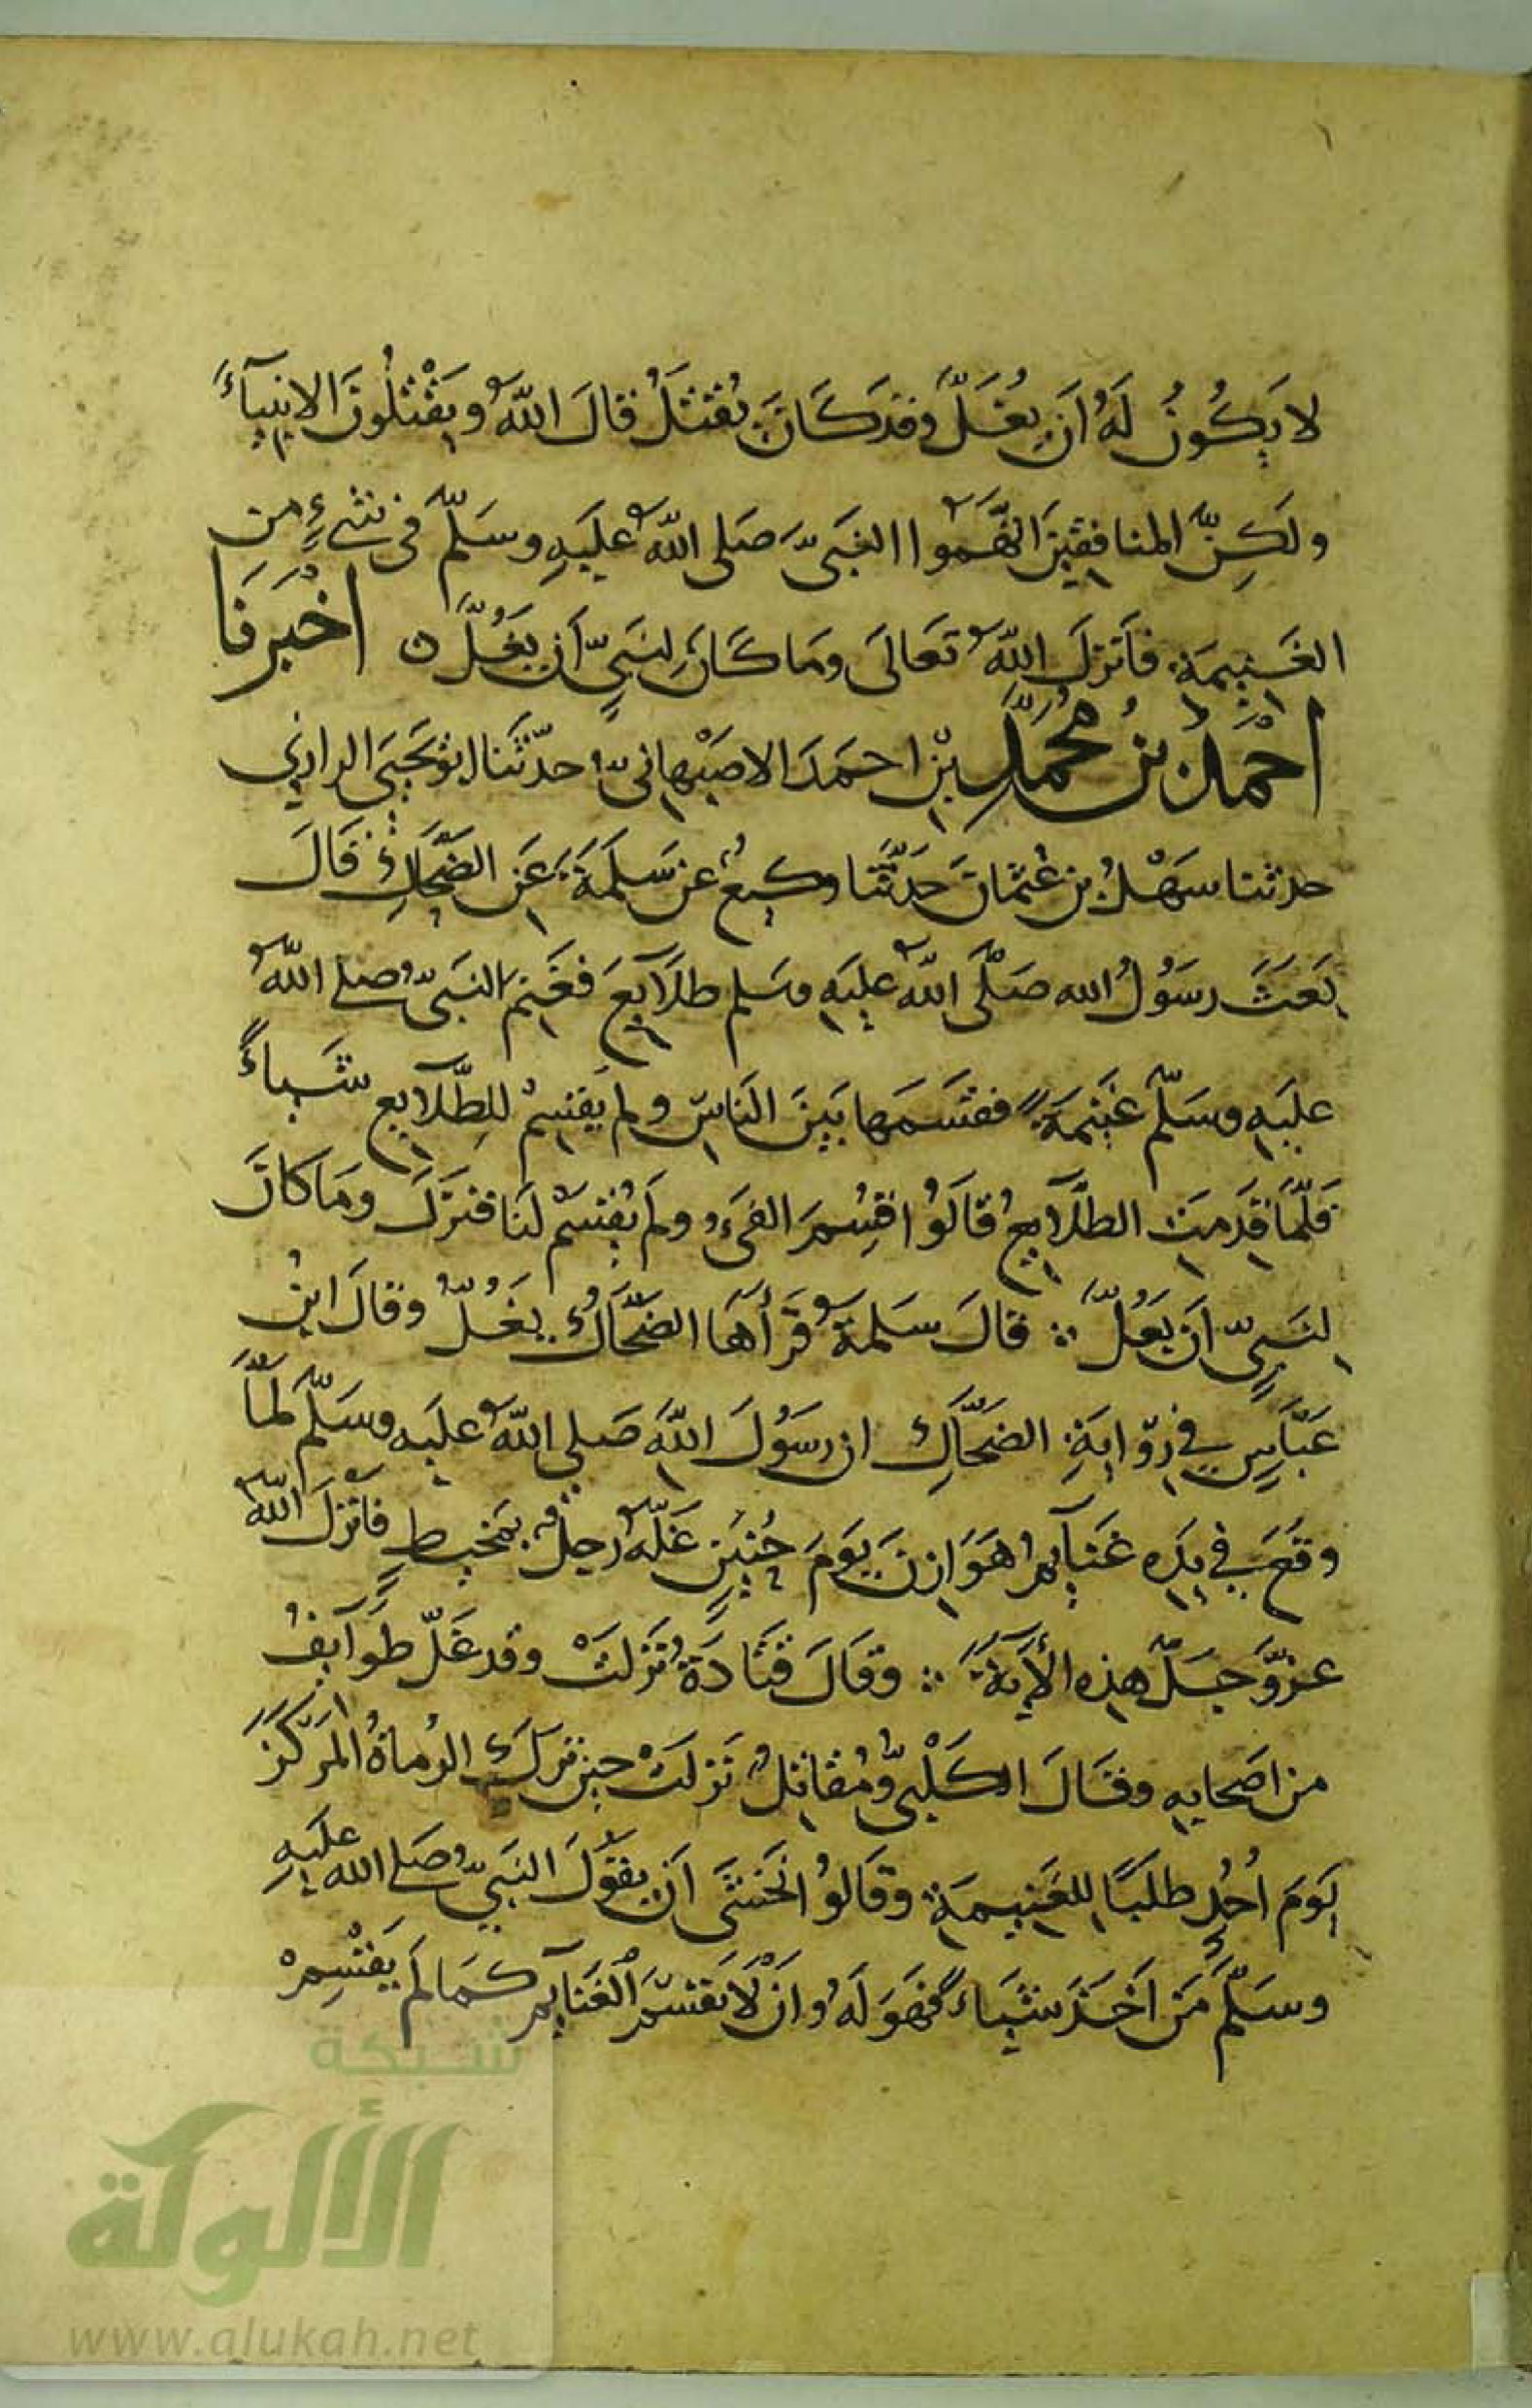 لا يَكُونُ لَهُ أن يُغَلَّ وقد كَانَ يُقتَلُ قالَ اللّهُ ويَقْتُلُونَ الانبيآءَ
ولَكِنَّ المنافقينَ اتَّهَمُوا النَبىَّ صَلى اللّهُ عليَهِ وسَلّم فى شىءٍ مِن
الغَنيمَةِ فأنزلَ اللّهُ تعَالَى ومَا كانَ لِنَبىٍّ أن يَغُلَّ ه اخْبَرنَا
احْمَدُ بنُ مُحَمّدِ بنِ احمَدَ الاصبَهانىُّ حدّثَنا ابُو يَحيَى الرازي
حدثنا سَهْلُ بن عُثمان حَدّثَنا وكيعٌ عن سَلمَةَ عَنِ الضَحَّاكِ قَالَ
بَعَثَ رسَوُلُ الله صَلَّى اللّهُ عليَهِ وسَلم طلاَيعَ فغَنِم النَبىُّ صلى اللّهُ
عليَهِ وسَلّم غَنيمَةً فقسَمَها بَينَ النَاسِ ولم يقسِمْ للِطّلآيع شَياءً
فَلمّا قَدِمَتِ الطلّآيعُ قالَوُا قسِمَ الفىءُ ولَم يُقسَمْ لنَا فنزلَ ومَا كانَ
لِنبىٍّ أن يَغُلَّ ∴ قالَ سَلمةُ قَرأهَا الضَحّاكُ يَغُلّ وقالَ ابنُ
عَبّاسٍ في رِوّايَةِ الضَحّاكِ ان رسَوُلَ اللّهَ صَلى اللّهُ عليَهِ وسَلّم لمَّا
وقعَ في يَدِه غَنآيمُ هَوَازنَ يوَمَ حُنَينٍ غلّهُ رجلٌ بمخيطٍ فأنزلَ اللّهُ
عزّ وَجلّ هذه الأيةَ ∴ وقالَ قَتَادَةُ نزَلتْ وقد غَلّ طوَآيفُ
من اصَحابِهِ وقَالَ الكَلْبىُّ ومُقاتِلُ نَزلتْ حِينَ تَركَتِ الرُماةُ المَركَزَ
يَومَ أُحُدٍ طلَبًا للغَنِيمَةِ وقَالوُا نَخشَى أن يقوُلَ النَبىُّ صَلى الله عليَهِ
وسَلّم مَن أخَذَ شيَاءً فهَوَ لَهُ وأن لَا يَقسمَ الغَنَايم كمَا لَم يَقْسِمْ
شبكة
الألوكة
www.alukah.net